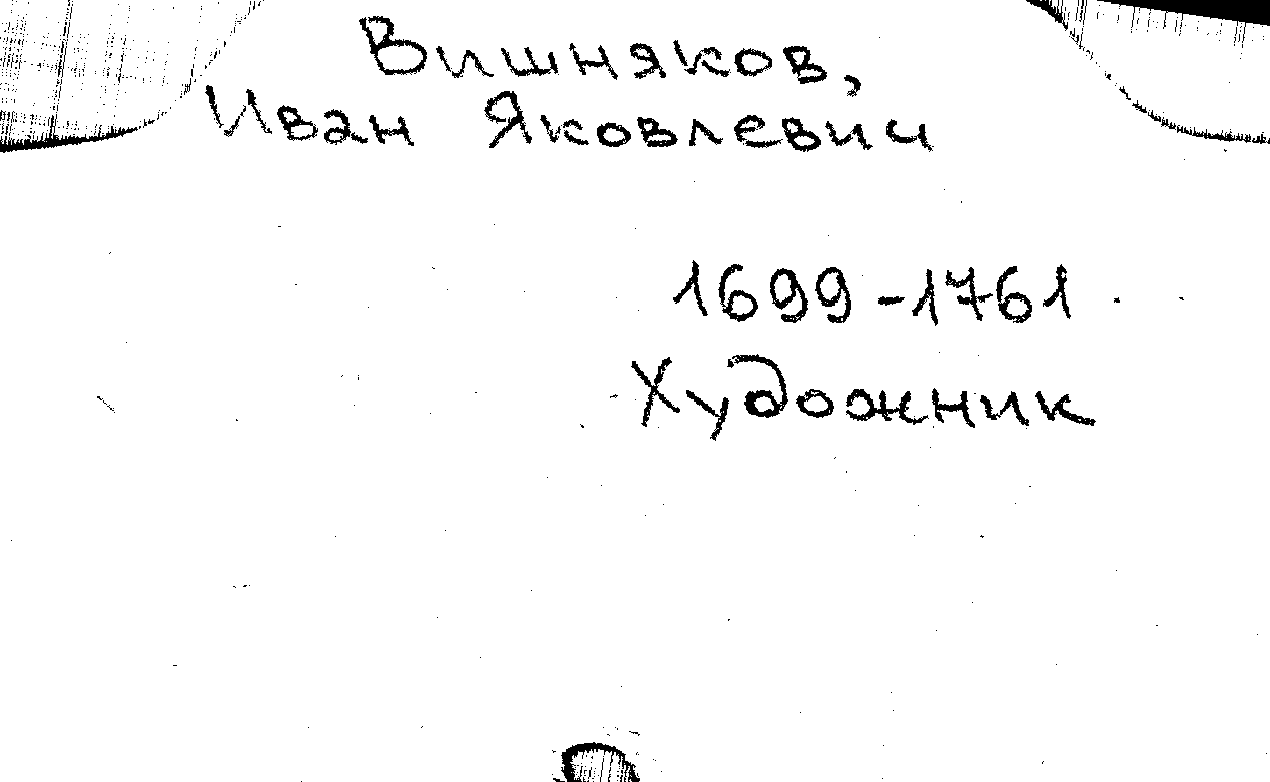 Вишняков,
Иван Яковлевич
1699-1761
Художник